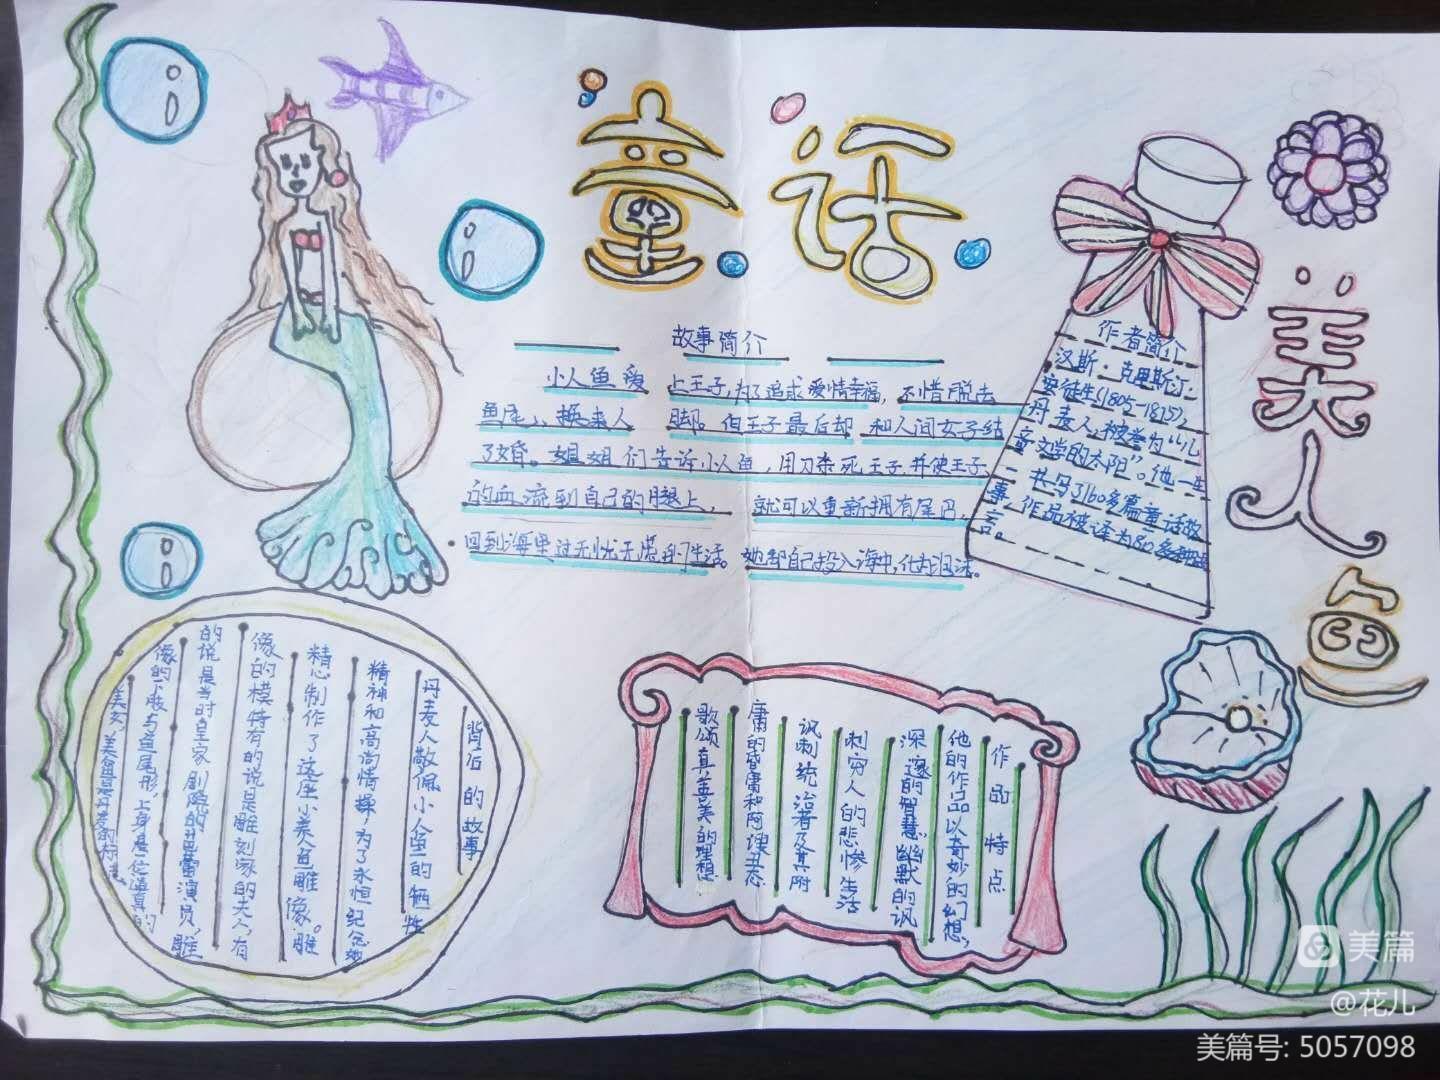 童话
美人鱼
故事简介
小人鱼爱上王子,为了追求爱情幸福,不惜脱去
鱼尾,换来人脚。但王子最后却和人间女子结
了婚。姐姐们告诉小人鱼,用刀杀死王子,并使王子
的血流到自己的腿上,就可以重新拥有尾巴,
回到海里过无忧无虑的生活。她却自己投入海中,化为泡沫。
作者简介
汉斯·克里斯汀·
安徒生(1805-1875),
丹麦人,被誉为“儿
童文学的太阳”。他一生
一共写了160多篇童话故
事,作品被译为80多种语
言。
背后的故事
丹麦人敬佩小人鱼的牺牲
精神和高尚情操,为了永恒纪念她
精心制作了这座小美人鱼雕像。雕
像的模特有的说是雕刻家的夫人,有
的说是当时皇家剧院的芭蕾演员,雕
像的下肢与鱼尾形上身是一位逼真的
美女,美
作品特点
他的作品以奇妙的幻想,
深邃的智慧,幽默的讽
刺穷人的悲惨生活
讽刺统治者及其附
庸的昏庸和阿谀丑态
歌颂真善美的理想
美篇
@花儿
美篇号: 5057098